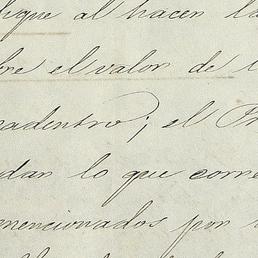 lique al hacer la
bre el valor de l
radentro; el Pr
dar lo que corre
mencionados por